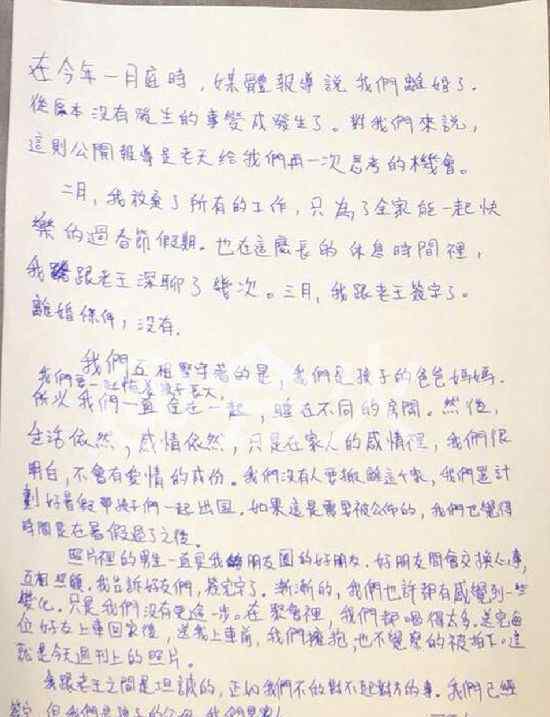 在今年一月底時，媒體報導說我們離婚了.
從原本沒有發生的事變成發生了。對我們來說，
這則公開報導是老天給我們再一次思考的機會。
二月，我放棄了所有的工作，只為了全家能一起快
樂的過春節假期. 也在這麼長的休息時間裡，
我跟老王深聊了幾次。三月，我跟老王簽字了。
離婚條件，沒有.
我們互相堅守著的是，我們是孩子的爸爸媽媽.
我們要一起陪著孩子長大,
所以我們一直住在一起，睡在不同的房間。然後,
生活依然，感情依然，只是在家人的感情裡，我們很
明白，不會有愛情的成份。我們沒有人要搬離這個家，我們還計
劃好暑假帶孩子們一起出國. 如果這是需要被公佈的，我們也覺得
時間是在暑假過了之後。
照片裡的男生一直是我朋友圈的好朋友. 好朋友間會交換心事,
互相照顧, 我告訴好友們，簽完字了. 漸漸的，我們也許都有感覺到一些
變化. 只是我們沒有更進一步。在聚會裡，我們都喝得太多. 送完每
位好友上車回家後，送我上車前，我們擁抱，也不覺察的被拍下. 這
就是今天週刊上的照片。
我跟老王之間是坦誠的，我們不做對不起對方的事. 我們已經
簽字，但我們是孩子的父母，我們是家人